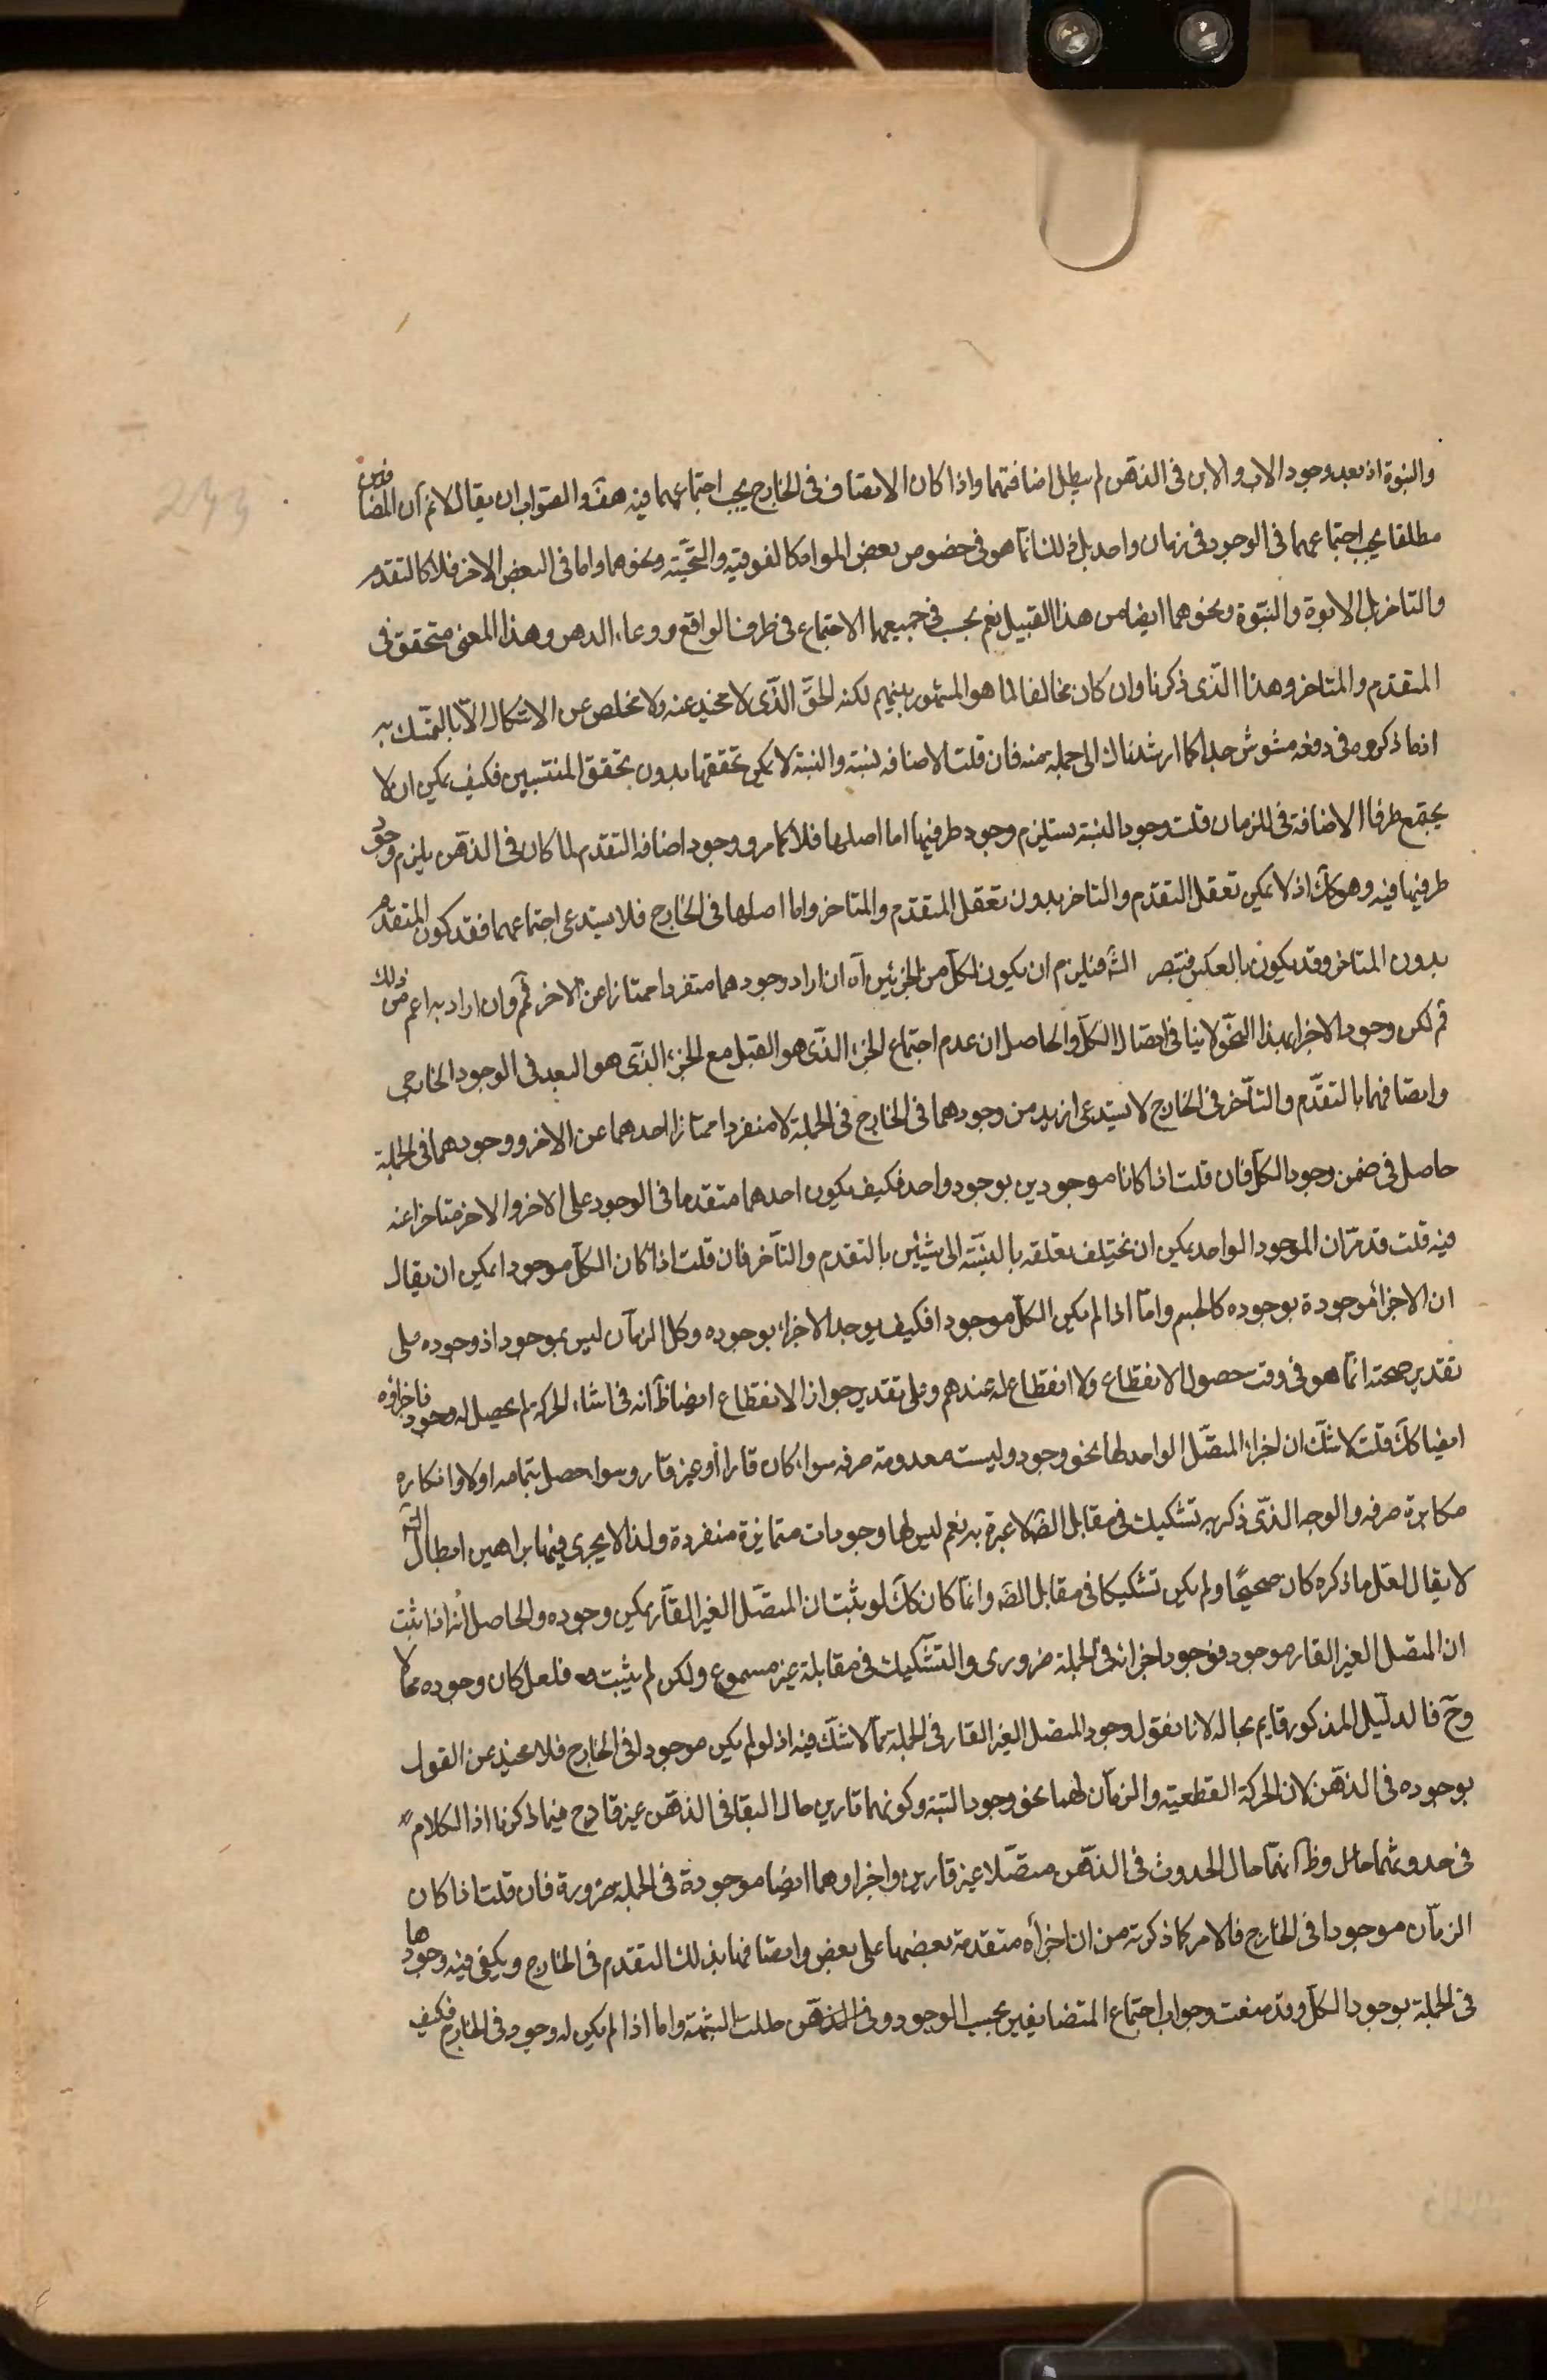 والبنوة اذ بعد وجود الاب والابن فى الذهن لم يبطل اضافتهما واذا كان الاتصاف فى الخارج يجب اجتماعهما فيه هف والصواب ان يقال لانم ان المضافين
مطلقا يجب اجتماعهما فى الوجود فى زمان واحد بل ذلك انما هو فى خصوص بعض المواد كالفوقية والتحتية ونحوهما واما فى البعض الاخر فلا كالتقدم
والتاخر بل الابوة والبنوة ونحوهما ايضا من هذا القبيل نعم يجب فى جميعها الاجتماع فى ظرف الواقع ووعاء الدهر وهذا المعنى متحقق فى
المتقدم والمتاخر وهذا الذى ذكرنا وان كان مخالفا لما هو المشهور بينهم لكنه الحق الذى لا محيد عنه ولا مخلص عن الاشكال الا بالتمسك به
اذ ما ذكروه فى دفعه مشوش جدا كما ارشدناك الى جملة منه فان قلت الاضافه نسبة والنسبة لا يمكن تحققها بدون تحقق المنتسبين فكيف يمكن ان لا
يجتمع طرفا الاضافة فى الزمان قلت وجود النسبة يستلزم وجود طرفيها اما اصلها فلا كما مر ووجود اضافة التقدم لما كان فى الذهن يلزم وجود
طرفيها فيه وهو كك اذ لا يمكن تعقل التقدم والتاخر بدون تعقل المتقدم والمتاخر واما اصلها فى الخارج فلا يستدعى اجتماعهما فقد يكون المتقدم
بدون المتاخر وقد يكون بالعكس فتبصر الش فيلزم ان يكون لكل من الجزئين آه ان اراد وجودهما متفردا ممتازا عن الاخر ثم وان اراد به اعم من ذلك
ثم لكن وجود الاجزاء بهذا النحو لا ينافى اتصال الكل والحاصل ان عدم اجتماع الجزء الذى هو القبل مع الجزء الذى هو البعد فى الوجود الخارجى
واتصافهما بالتقدم والتأخر فى الخارج لا يستدعى ازيد من وجودهما فى الخارج فى الجملة لا منفردا ممتازا احدهما عن الاخر ووجودهما فى الجملة
حاصل فى ضمن وجود الكل فان قلت اذا كانا موجودين بوجود واحد فكيف يكون احدهما متقدما فى الوجود على الاخر والاخر متاخرا عنه
فيه قلت قد مر ان الموجود الواحد يمكن ان يختلف تعلقه بالنسبة الى شيئين بالتقدم والتأخر فان قلت اذا كان الكل موجودا يمكن ان يقال
ان الاجزاء موجودة بوجوده كالجسم واما اذا لم يكن الكل موجودا فكيف يوجد الاجزاء بوجوده وكل الزمان ليس بموجود اذ وجوده على
تقدير صحته انما هو فى وقت حصول الانقطاع ولا انقطاع له عندهم وعلى تقدير جواز الانقطاع ايضا ظ انه فى اثناء الحركة لم يحصل له وجود فاجزاؤه
ايضا كك قلت لا شك ان اجزاء المتصل الواحد لها نحو وجود وليست معدومة صرفه سواء كان قارا أو غير قار وسواء حصل بتمامه اولا وانكاره
مكابرة صرفه والوجه الذى ذكر به تشكيك فى مقابل الضة لا عبرة به نعم ليس لها وجودات متمايزة منفردة ولذا لا يجرى فيها براهين ابطال التسه
لا يقال لعل ما ذكره كان صحيحا ولم يكن تشكيكا فى مقابل الضه وانما كان كك لو يثبت ان المتصل الغير القار يمكن وجوده والحاصل انه اذا ثبت
ان المتصل الغير القار موجود فوجود اجزائه فى الجملة ضرورى والتشكيك فى مقابلة غير مسموع ولكن لم يثبت فلعل كان وجوده محالا
وح فالدليل المذكور قايم بحاله لانا نقول وجود المتصل الغير القار فى الجملة مما لا شك فيه اذ لو لم يكن موجودا فى الخارج فلا محيد عن القول
بوجوده فى الذهن لان الحركة القطعية والزمان لهما نحو وجود البتة وكونهما قارين حال البقا فى الذهن غير قادح فيما ذكرنا اذ الكلام
فى حدوثهما وظ انهما حال الحدوث فى الذهن متصلا غير قارين واجزاوهما ايضا موجودة فى الجملة ضرورة فان قلت اذا كان
الزمان موجودا فى الخارج فالامر كما ذكرته من ان اجزأه متقدمة بعضها على بعض واتصافها بذلك التقدم فى الخارج ويكفى فيه وجودها
فى الجملة بوجود الكل وقد منعت وجوب اجتماع المتضايفين بحسب الوجود وفى الذهن الشبهة واما اذا لم يكن له وجود فى الخارج فكيف